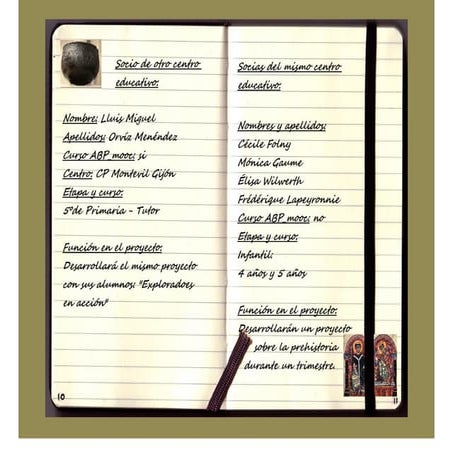 Socio de otro centro
educativo:
Nombre: Lluis Miguel
Apellidos: Orvíz Menéndez
Curso ABP mooc: si
Centro: CP Montevil Gijón
Etapa y curso:
5ºde Primaria - Tutor
Función en el proyecto:
Desarrollará el mismo proyecto
con sus alumnos: "Exploradoes
en acción"
10
Socias del mismo centro
educativo:
Nombres y apellidos:
Cécile Folny
Mónica Gaume
Élisa Wilwerth
Frédérique Lapeyronnie
Curso ABP mooc: no
Etapa y curso:
Infantil:
4 años y 5 años
Función en el proyecto:
Desarrollarán un proyecto
sobre la prehistoria
durante un trimestre.
11